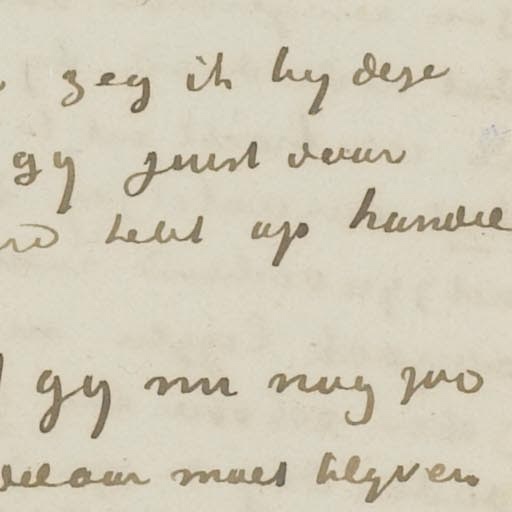 zeg ik by deze
gy juist daar
hebt op handel
gy nu nog zoo
moet blyven